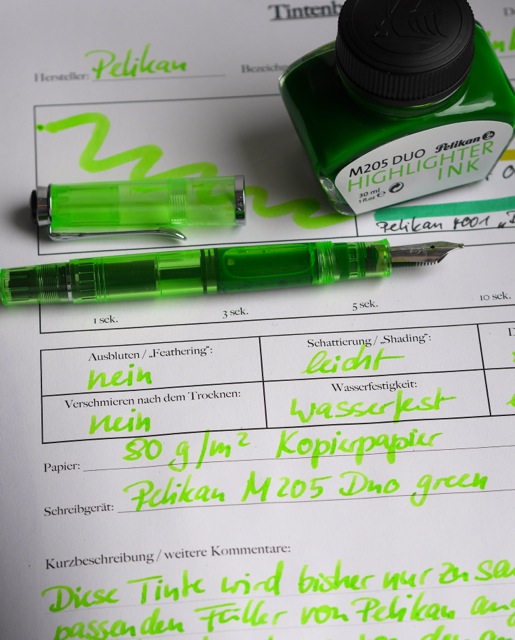 Hersteller: Pelikan
M205 DUO Pelikan
HIGHLIGHTER
INK
30 ml
1 fl oz
Pelikan 4001
1 sek. 3 sek. 5 sek. 10 sek.
Ausbluten / „Feathering“: Schattierung / „Shading“:
nein leicht
Verschmieren nach dem Trocknen: Wasserfestigkeit:
nein wasserfest
Papier: 80 g/m² Kopierpapier
Schreibgerät: Pelikan M205 Duo green
Kurzbeschreibung / weitere Kommentare:
Diese Tinte wird bisher nur zu
passenden Füller von Pelikan